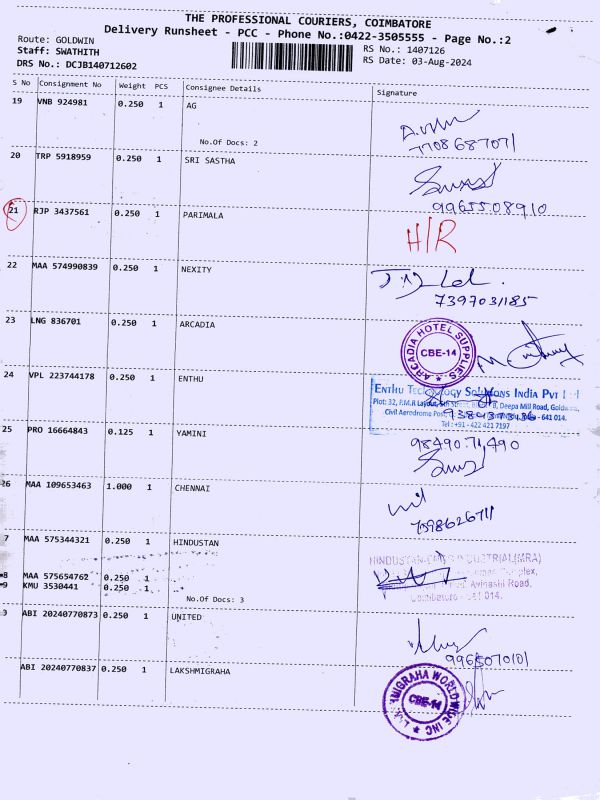 THE PROFESSIONAL COURIERS, COIMBATORE
Delivery Runsheet - PCC - Phone No.:0422-3505555 - Page No.:2
Route: GOLDWIN
Staff: SWATHITH
DRS No.: DCJB140712602
RS No.: 1407126
RS Date: 03-Aug-2024
S No Consignment No Weight PCS Consignee Details Signature
19 VNB 924981 0.250 1 AG
No.Of Docs: 2
7708687071
20 TRP 5918959 0.250 1 SRI SASTHA
9965508910
21 RJP 3437561 0.250 1 PARIMALA
H/R
22 MAA 574990839 0.250 1 NEXITY
7397031185
23 LNG 836701 0.250 1 ARCADIA
ARCADIA HOTEL SUPPLIES
CBE-14
24 VPL 223744178 0.250 1 ENTHU
ENTHU Technology Solutions India Pvt
Plot: 32, P.M.R Layout, Deepa Mill Road,
Civil Aerodrome Post, - 641 014.
Tel : +91 - 422 421 7197
25 PRO 16664843 0.125 1 YAMINI
26 MAA 109653463 1.000 1 CHENNAI
7598626711
7 MAA 575344321 0.250 1 HINDUSTAN
8 MAA 575654762 0.250 1
9 KMU 3530441 0.250 1
No.Of Docs: 3
Avinashi Road,
014.
ABI 20240770873 0.250 1 UNITED
9965070101
ABI 20240770837 0.250 1 LAKSHMIGRAHA
WORLDWIDE INC
CBE-14